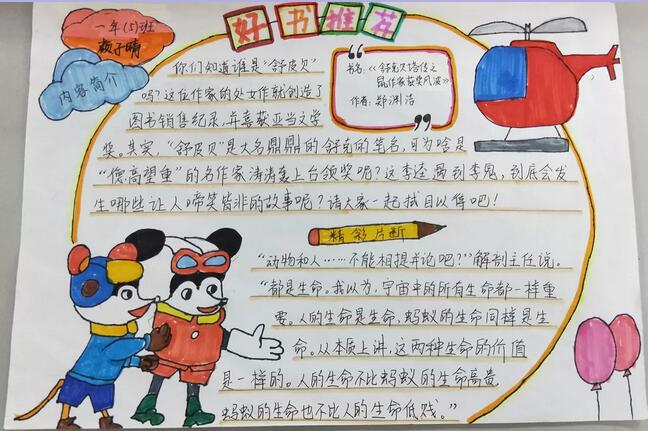 好书推荐
一年(5)班
颜子晴
内容简介
你们知道谁是“舒皮贝”
吗?这位作家的处女作就创造了
图书销售纪录,并喜获亚当文学
奖。其实,“舒皮贝”是大名鼎鼎的舒克的笔名,可为啥是
“德高望重”的名作家涛涛要上台领奖呢?这李逵遇到李鬼,到底会发
生哪些让人啼笑皆非的故事呢?请大家一起拭目以待吧!
书名:《舒克贝塔传之
鼠作家获奖风波》
作者:郑渊洁
精彩片断
“动物和人……不能相提并论吧?”解剖主任说。
“都是生命。我以为,宇宙中的所有生命都一样重
要。人的生命是生命,蚂蚁的生命同样是生
命。从本质上讲,这两种生命的价值
是一样的。人的生命不比蚂蚁的生命高贵,
蚂蚁的生命也不比人的生命低贱。”